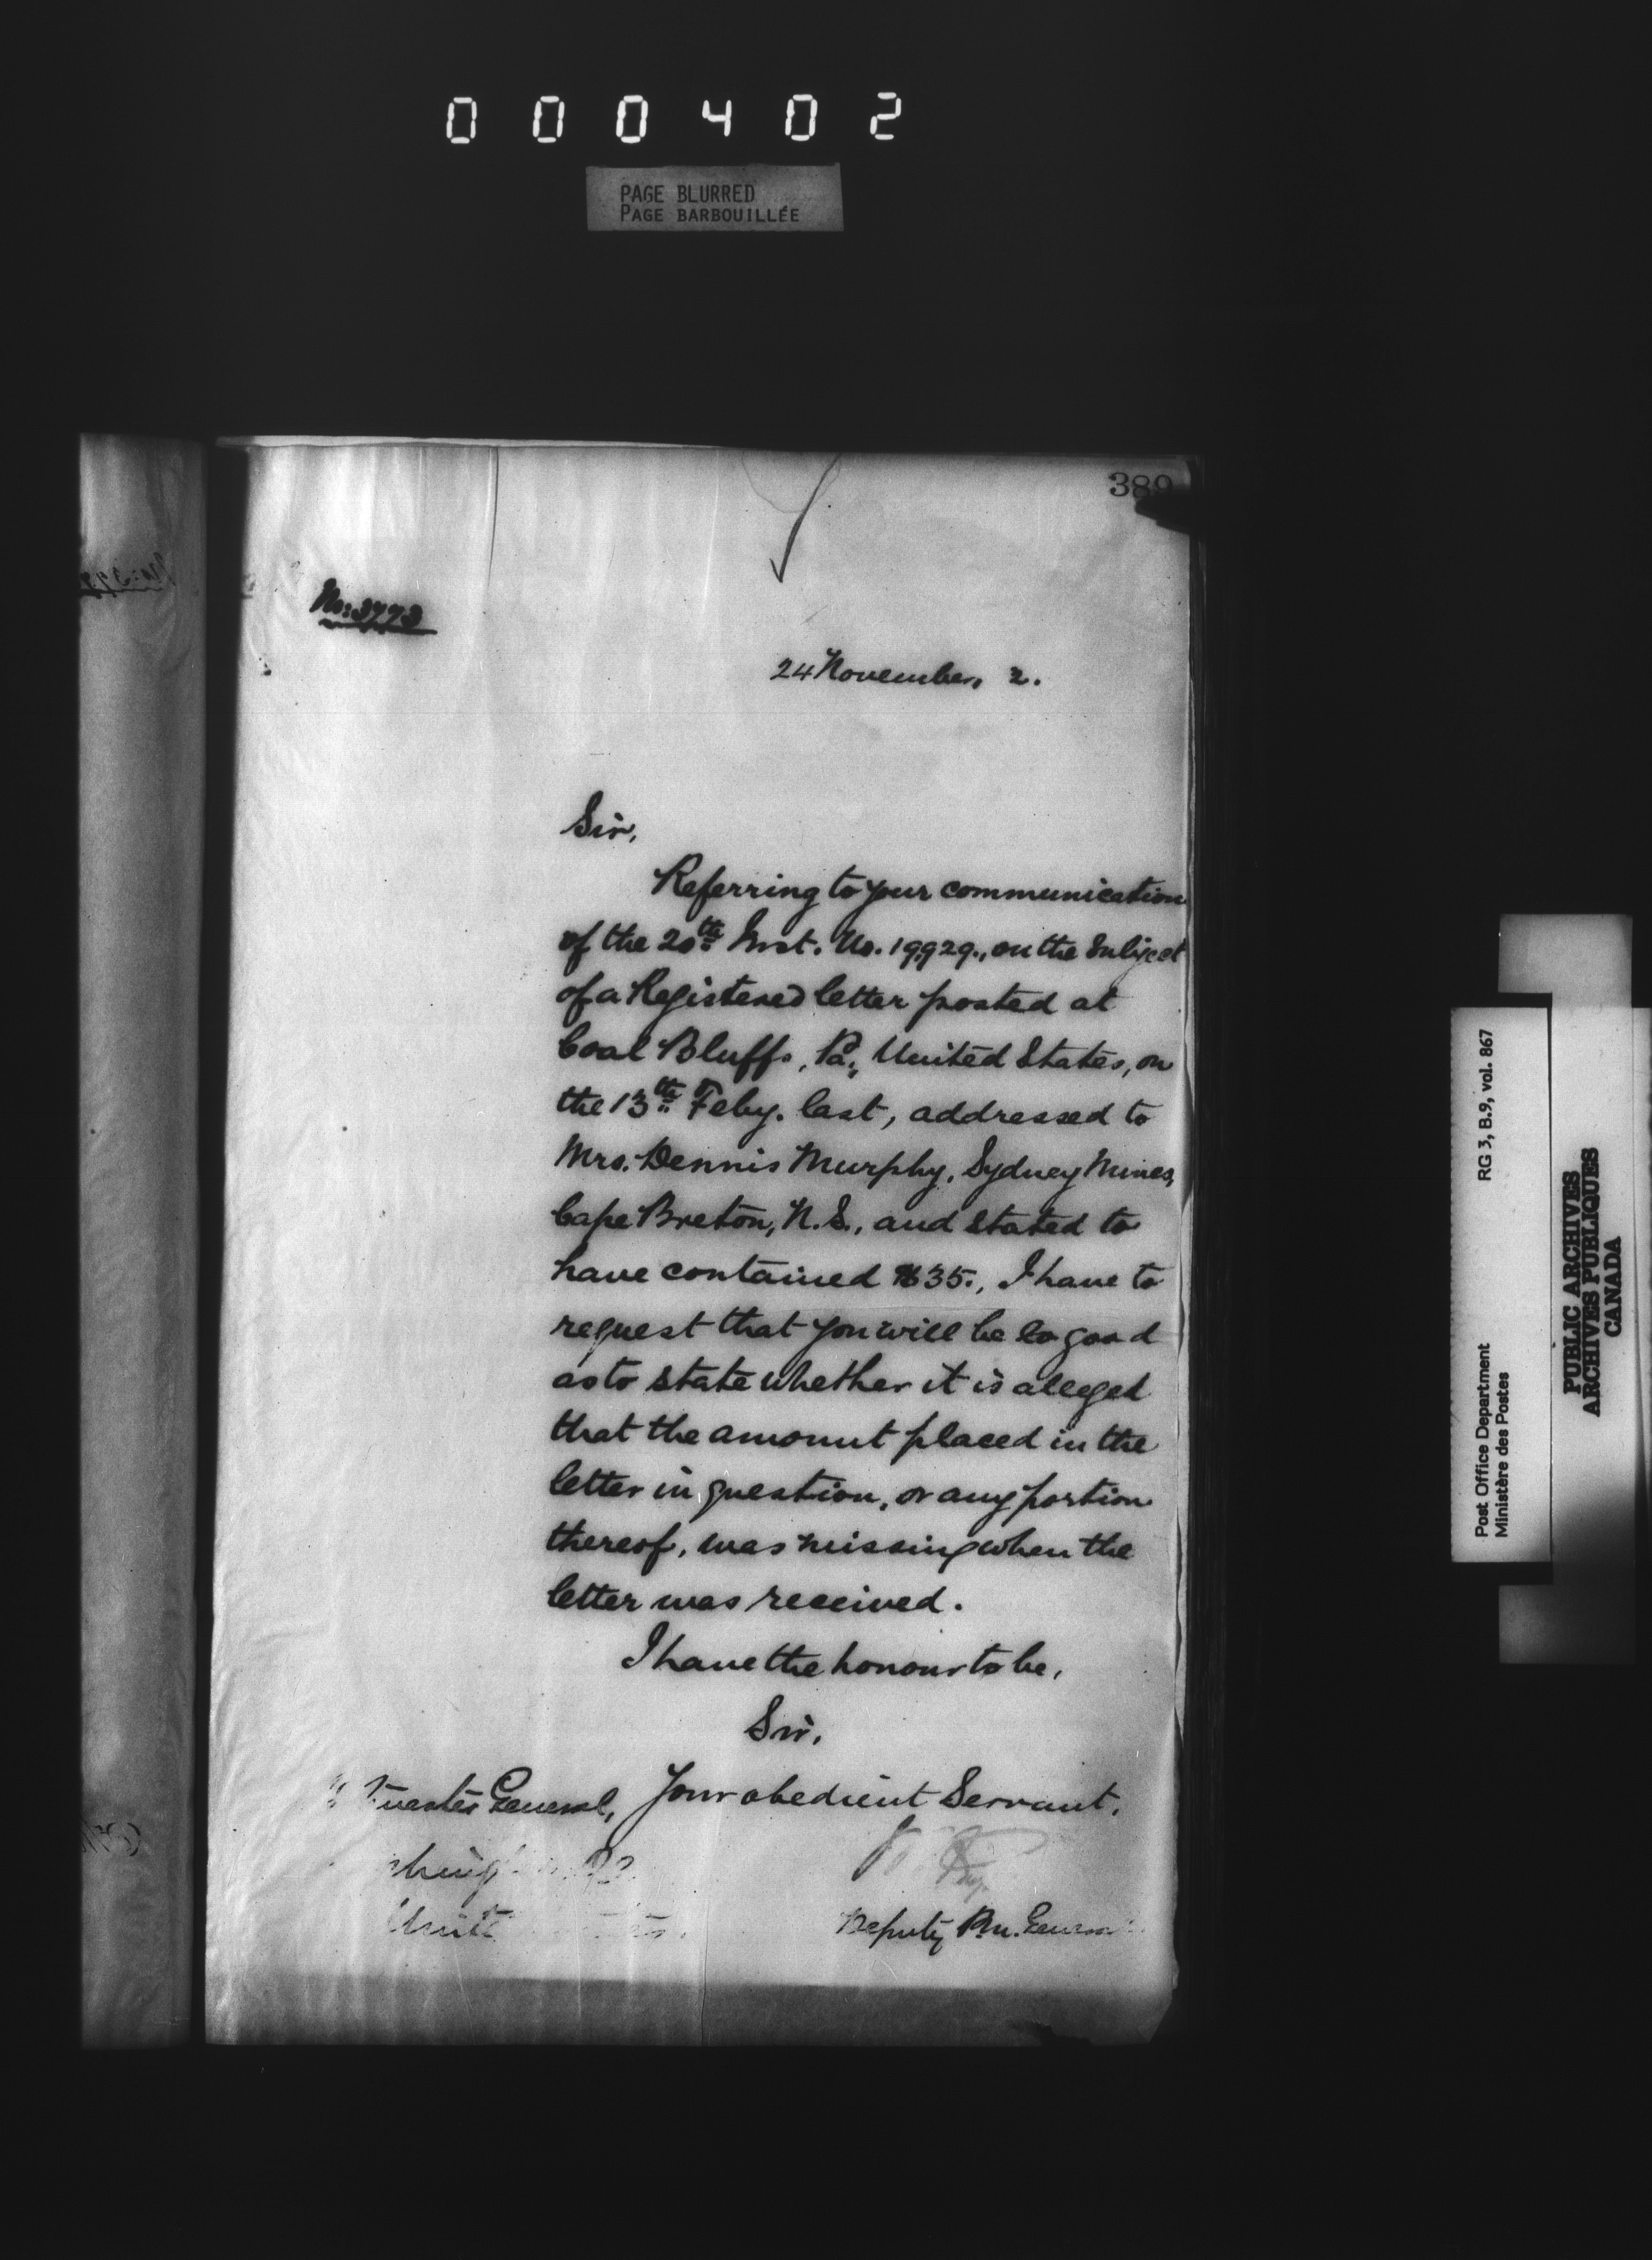 000402
PAGE BLURRED
PAGE BARBOUILLÉE
389
No: 3773
24 November, 2.
Sir,
Referring to your communication
of the 20th Inst. No. 19929., on the subject
of a Registered letter posted at
Coal Bluffs, Pa., United States, on
the 13th Feby. last, addressed to
Mrs. Dennis Murphy, Sydney Mines,
Cape Breton, N.S., and stated to
have contained $35., I have to
request that you will be so good
as to state whether it is alleged
that the amount placed in the
letter in question, or any portion
thereof, was missing when the
letter was received.
I have the honour to be,
Sir,
Your obedient Servant,
General,
Deputy P.M. General
Post Office Department
Ministère des Postes
RG 3, B.9, vol. 867
PUBLIC ARCHIVES
ARCHIVES PUBLIQUES
CANADA